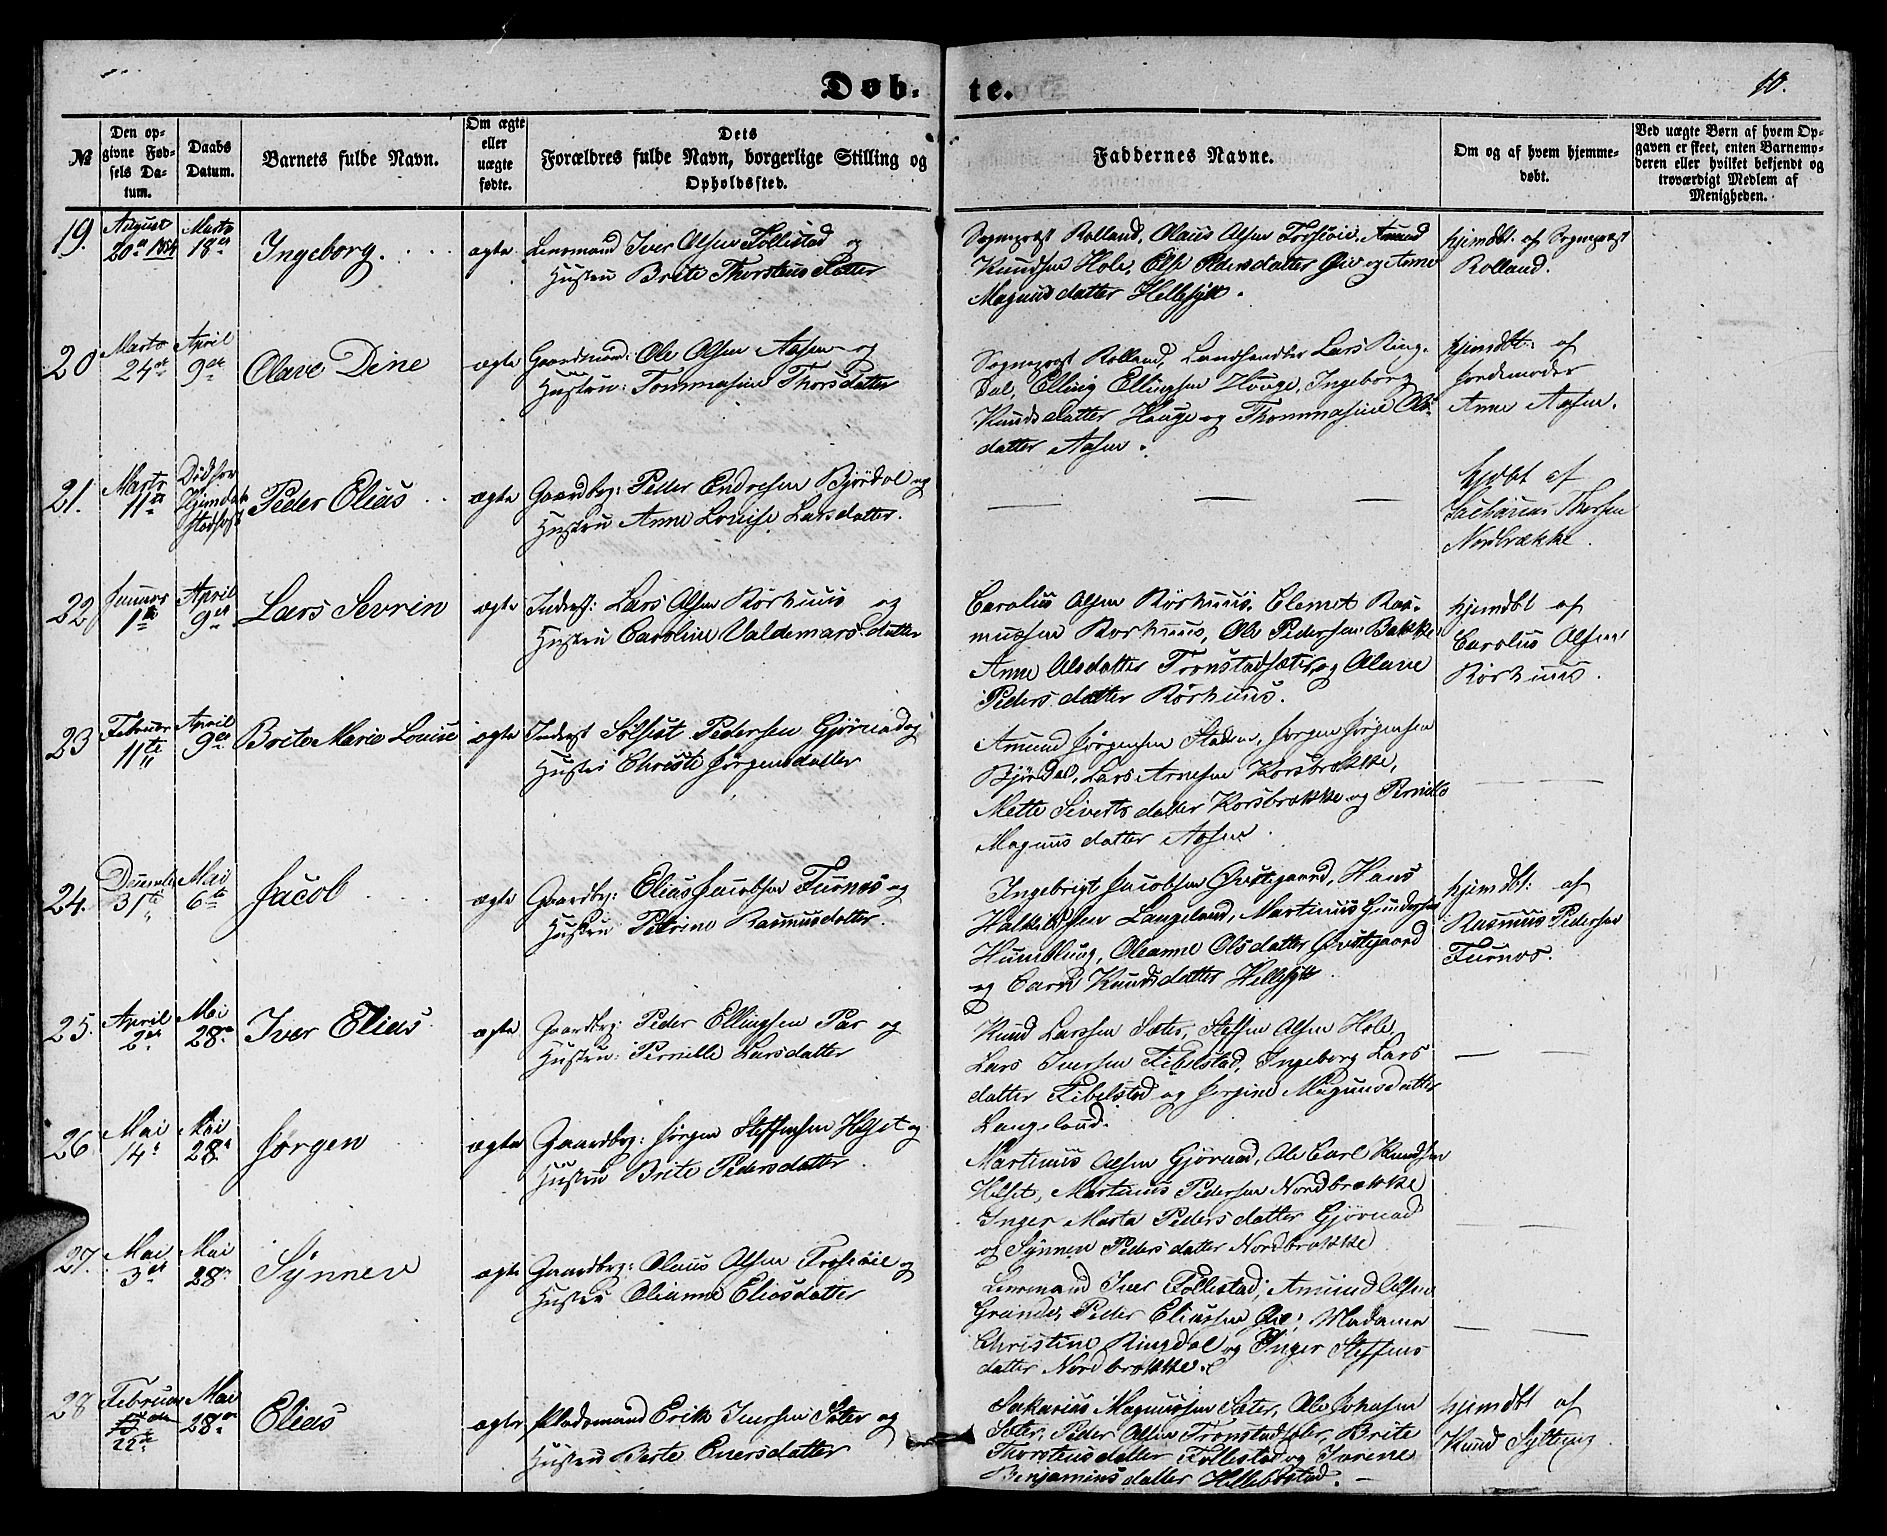 Døb-
te.
10.
№
Den op-
givne Fød-
sels Da-
tum.
Daabs
Datum.
Barnets fulde Navn.
Om ægte
eller
uægte
fødte.
Dets
Forældres fulde Navn, borgerlige Stilling og
Opholdssted.
Faddernes Navne.
Om og af hvem hjemme-
døbt.
Ved uægte Børn af hvem Op-
gaven er skeet, enten Barnemo-
deren eller hvilket bekjendt og
troværdigt Medlem af
Menigheden.
19.
August
20de 1854
Marts
18de
Ingeborg.
ægte
Lensmand Iver Olsen Follestad og
Hustru Brite Thorstens Datter
Sogneprest Rolland, Olaus Olsen Trohøie, Amund
Knudsen Hole, Else Pedersdatter Øie og Anne
Magnusdatter Hellesylt.
hjemdt af Sogneprest
Rolland.
20
Marts
24de
April
9de
Olave Dine
ægte
Gaardmand: Ole Olsen Aasen og
Hustru: Tommasine Thorsdatter
Sogneprest Rolland, Landhandler Lars Ring-
dal, Elling Ellingsen Houge, Ingeborg
Knudsdatter Houge og Thommasine Ols-
datter Aasen.
hjemdt: af
Jordemoder
Anne Aasen.
21.
Marts
11te
Død før
Hjemdaab
stadfæst
Peder Elias
ægte
Gaardbrg: Peder Endresen Bjørdal og
Hustru Anne Louise Larsdatter.
hjdøbt af
Sacharias Thorsen
Nordbrække.
22
Januar
1ste
April
9de
Lars Sevrin
ægte
Inderst: Lars Olsen Kørhuus og
Hustru Caroline Valdemarsdatter
Carolus Olsen Kørhuus, Clemet Ras-
mussen Korhuus, Ole Pedersen Bakke
Anne Olsdatter Tronstadsæter og Olave
Pedersdatter Kørhuus.
hjemdbt af
Carolus Olsen
Kørhuus.
23
Februar
11te
April
9de
Brite Marie Louise
ægte
Inderst Sølfest Pedersen Gjørvad og
Hustru Christi Jørgensdatter
Amund Jørgensen Staden, Jørgen Jørgensen
Bjørdal, Lars Arnesen Korsbrække,
Mette Sivertsdatter Korsbrække og Pernille
Magnusdatter Aasen.
24.
December
31te
Mai
6te
Jacob
ægte
Gaardbrg: Elias Jacobsen Furnes og
Hustru Petrine Rasmusdatter.
Ingebrigt Jacobsen Øvstegaard, Hans
Halkeldsen Langeland, Martinus Gundersen
Humblung, Oleanne Olsdatter Øvstegaard
og Caren Knudsdatter Hellesylt.
hjemdt: af
Rasmus Pedersen
Furnes.
25.
April
2den
Mai
28de
Iver Elias.
ægte
Gaardbrg: Peder Ellingsen Par og
Hustru: Pernille Larsdatter
Knud Larssen Sæter, Steffen Olsen Hole,
Lars Iversen Fibelstad, Ingeborg Lars
datter Fibelstad og Jørgine Magnusdatter
Langeland.
26
Mai
14de
Mai
28de
Jørgen
ægte
Gaardbrg: Jørgen Steffensen Helset og
Hustru Brite Pedersdatter.
Martinus Olsen Gjørvad, Ole Carl Knudsen
Helset, Martinus Pedersen Nordbrække
Inger Marta Pedersdatter Gjørvad
og Synnev Pedersdatter Nordbrække
27.
Mai
3de
Mai
28de
Synnev
ægte
Gaardbrg: Olaus Olsen Trohøie og
Hustru Olianne Eliasdatter
Lensmand Iver Follestad, Amund Olsen
Grande, Peder Eliassen Øie, Madame
Christine Ringdal og Inger Steffens
datter Nordbrække.
28
Februar
22de
Mai
28de
Elias
ægte
Pladsmand Erik Iverssen Sæter og
Hustru Berte Enersdatter
Sakarias Magnussen Sæter, Ole Johnsen
Sæter, Peder Olsen Tronstadsæter, Brite
Thorstensdatter Follestad og Severine
Benjaminsdatter Hellebostad.
hjemdbt af
Knud Sylteng